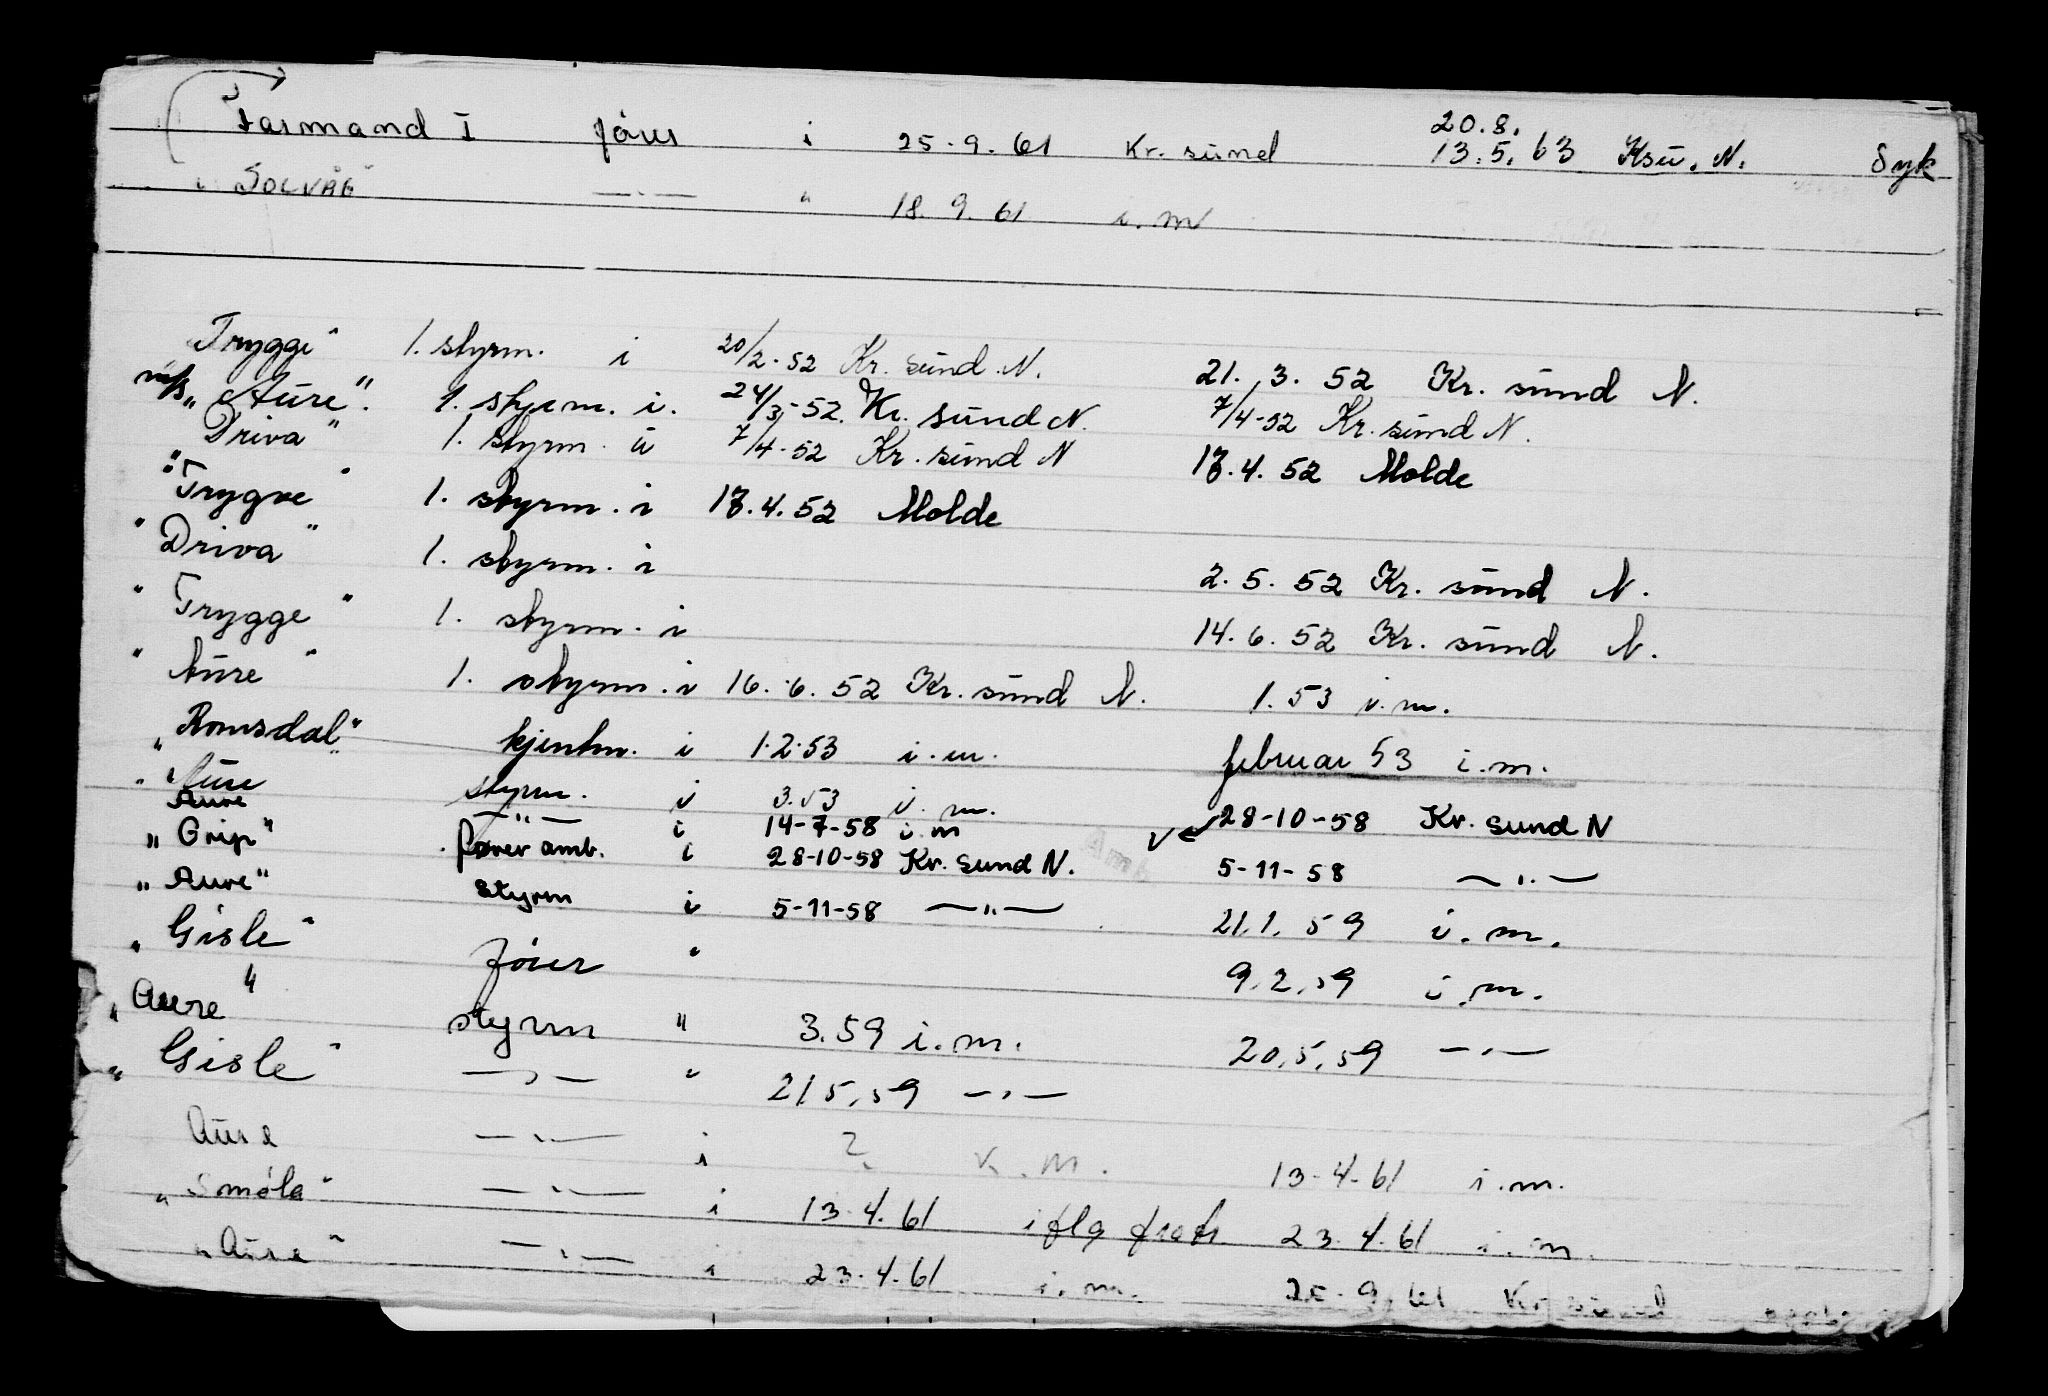 Farmand I fører i 25.9.61 Kr. sund 20.8. 13.5.63 Ksu. N. Syk
" SOLVÅG —"— " 18.9.61 i.m
Trygge" 1. styrm. i 20/2-52 Kr. sund N. 21. 3. 52 Kr. sund N.
m/s "Aure". 1. styrm. i. 24/3-52. Kr. sund N. 7/4-52 Kr. sund N.
Driva" 1. styrm. i 7/4-52 Kr. sund N 4. 52 Molde
"Trygve" 1. styrm. i 4.52 Molde
"Driva" 1. styrm. i 2. 5. 52 Kr. sund N.
"Trygge" 1. styrm. i 14. 6. 52 Kr. sund N.
"Aure" 1. styrm. i 16. 6. 52 Kr. sund N. 1. 53 i.m.
"Romsdal" kjentm. i 1.2.53 i.m. februar 53 i.m.
"Aure" styrm. i 3.53 i.m.
Aure —"— i 14-7-58 i.m 28-10-58 Kr. sund N
"Grip" fører amb. i 28-10-58 Kr. sund N. 5-11-58 —"—
"Aure" styrm i 5-11-58 —"— 21.1.59 i.m.
"Gisle" fører " 9.2.59 i.m.
"Aure" styrm " 3.59 i.m. 20.5.59 —"—
"Gisle" —"— " 21.5.59 —"—
Aure —"— i ? K.M. 13-4-61 i.m.
"Smøla" —"— i 13.4.61 i flg 23.4.61 i.m.
"Aure" —"— i 23.4.61 i.m. 25.9.61 Kr. sund